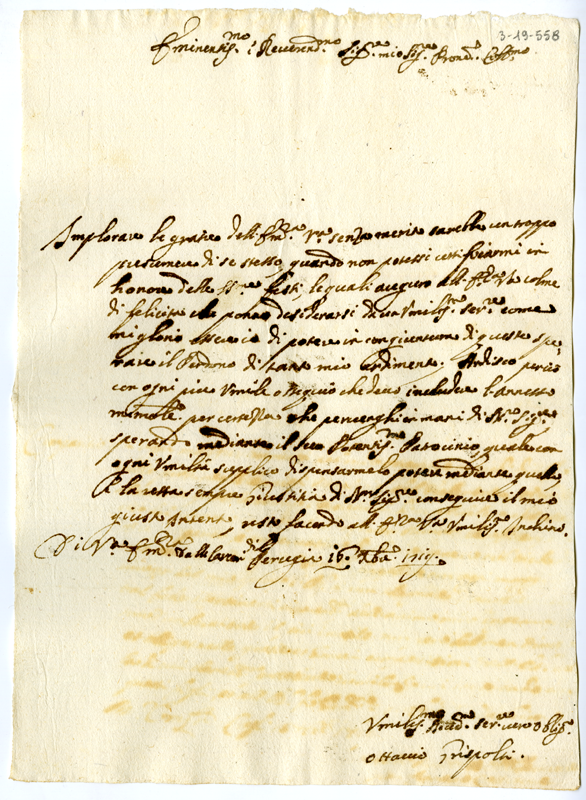 3-19-558
Eminentis.mo e Reverend.mo Sig.re mio Sig.re Prone Coll.mo
Implorare le gratie dell'Em.za V.ra senza merito sarebbe un troppo
presumere di se stesso, quando non potessi certificarmi in
honore delle SS.me feste, le quali auguro all'Em.za V.ra colme
di felicità che ponno desiderarsi da un Vmiliss.mo ser.re come
mi glorio essere io di potere in congiuntura di queste spe-
rare il Perdono di tanto mio ardimento. Ardisco perciò
con ogni più Vmile ossequio che devo includere l'annesso
memoriale per certezza che pervenghi in mani di N.ro Sig.re
sperando mediante il suo Potentis.mo Patrocinio, quale con
ogni Vmiltà supplico dispensarmelo potere mediante quello
e la retta sempre Giustitia di N.ro Sig.re conseguire il mio
giusto Intento, resto facendo all'Em.za V.ra Vmilis.mo Inchino.
Di V.ra Em.za Dalle Carceri di Perugia 16. Xbre 1719.
Vmilis.mo Dev.mo ser.re vero oblig.o
Ottavio Grispolti.